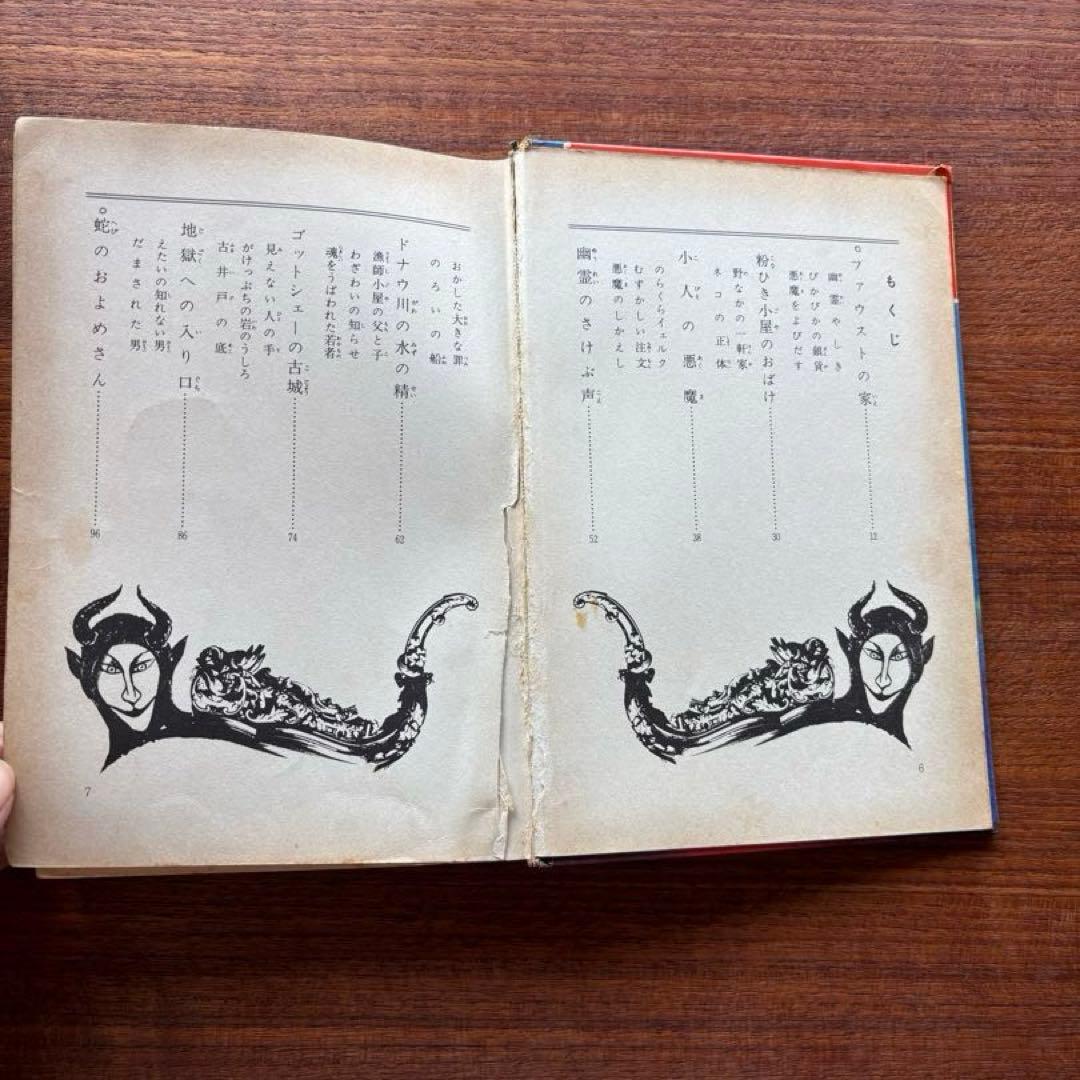 もくじ
ファウストの家……12
幽霊やしき
ぴかぴかの銀貨
悪魔をよびだす
粉ひき小屋のおばけ……30
野なかの一軒家
ネコの正体
小人の悪魔……38
のらくらイェルク
むずかしい注文
悪魔のしかえし
幽霊のさけぶ声……52
6
おかした大きな罪
のろいの船
ドナウ川の水の精……62
漁師小屋の父と子
わざわいの知らせ
魂をうばわれた若者
ゴットシェーの古城……74
見えない人の手
がけっぷちの岩のうしろ
古井戸の底
地獄への入り口……86
えたいの知れない男
だまされた男
蛇のおよめさん……96
7